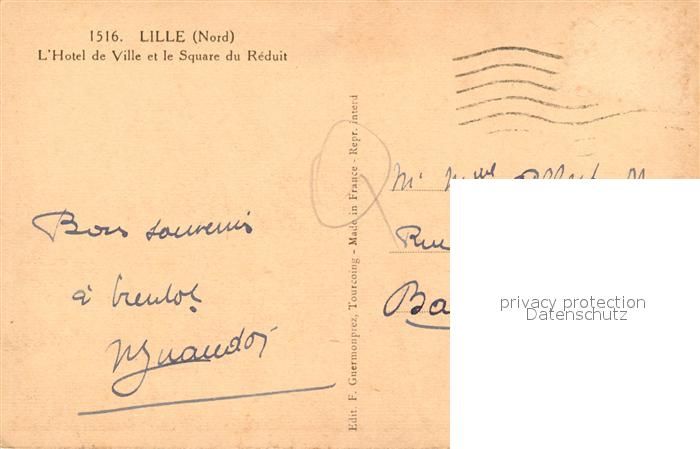 1516. LILLE (Nord)
L'Hotel de Ville et le Square du Réduit
Bons souvenirs
à bientot
Edit. F. Guermonprez, Tourcoing - Made in France - Repr. interd
Mr Mme
Rue
Ba
privacy protection
Datenschutz